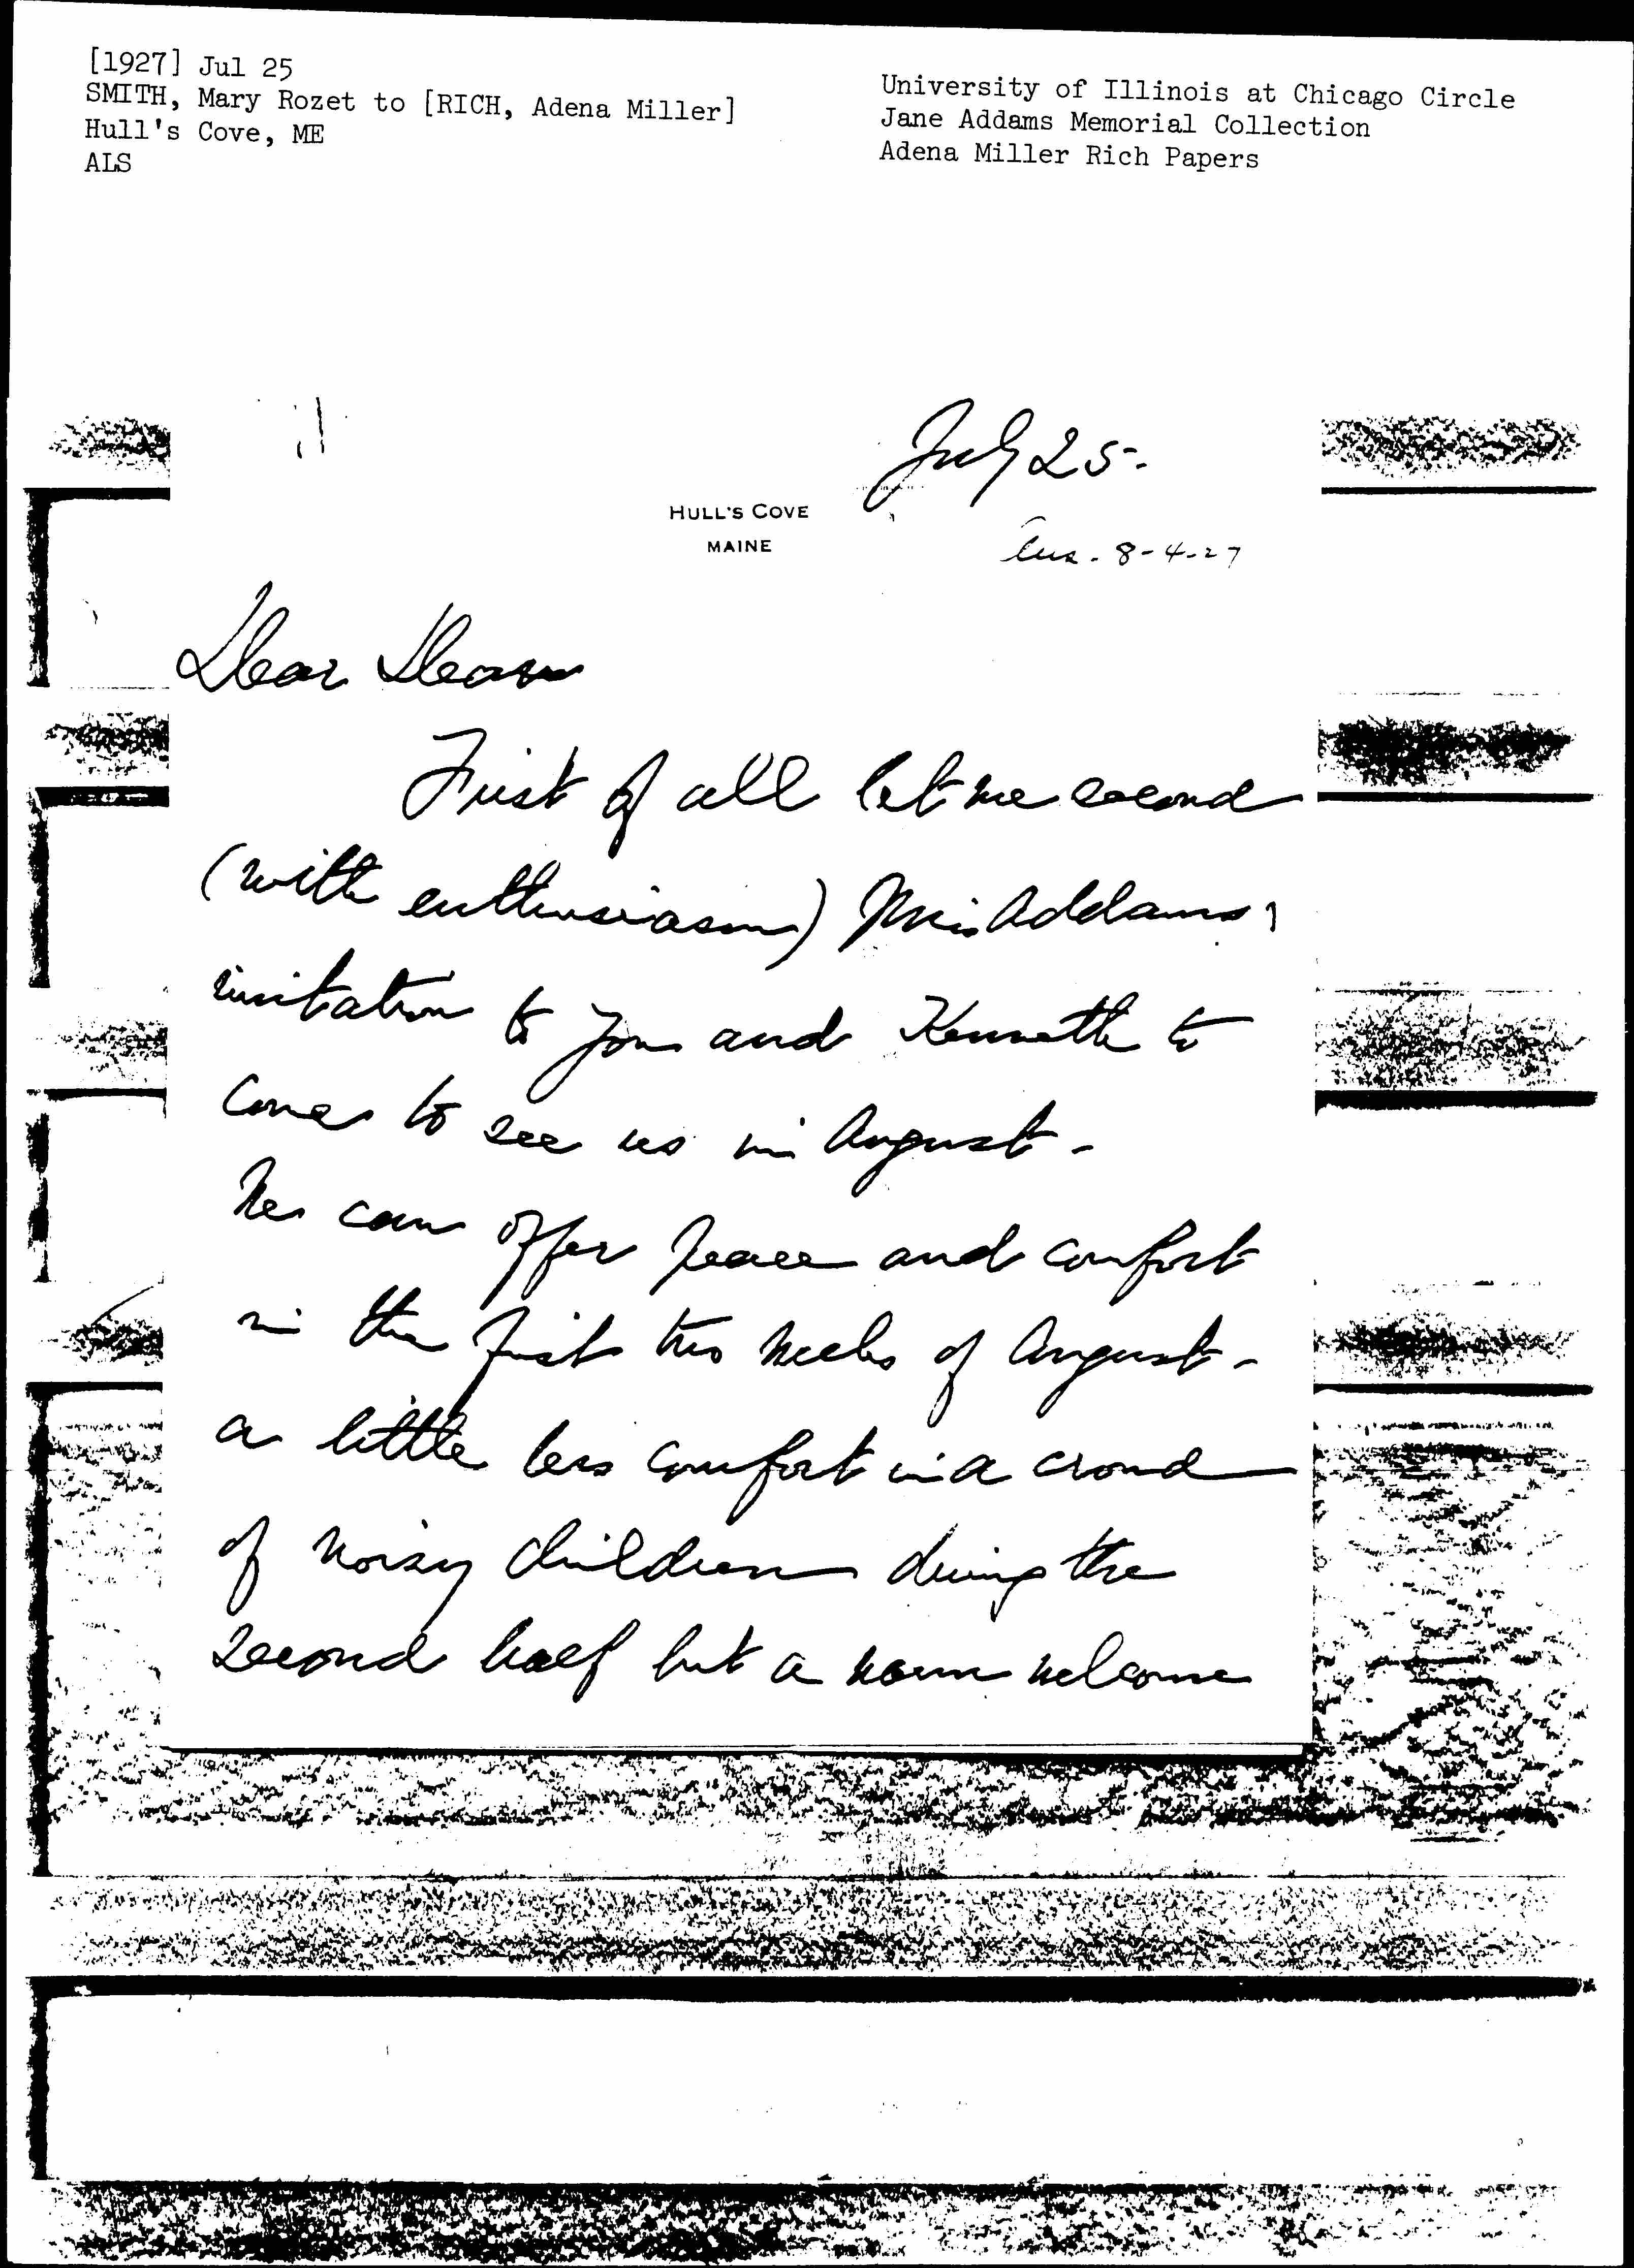 [1927] Jul 25
SMITH, Mary Rozet to [RICH, Adena Miller]
Hull's Cove, ME
ALS
University of Illinois at Chicago Circle
Jane Addams Memorial Collection
Adena Miller Rich Papers
July 25.
HULL'S COVE
MAINE
Ans. 8-4-27
Dear Dean
First of all let me second
(with enthusiasm) Miss Addams'
invitation to you and Kenneth to
come to see us in August -
We can offer peace and comfort
in the first two weeks of August -
a little less comfort in a crowd
of noisy children during the
second half but a warm welcome